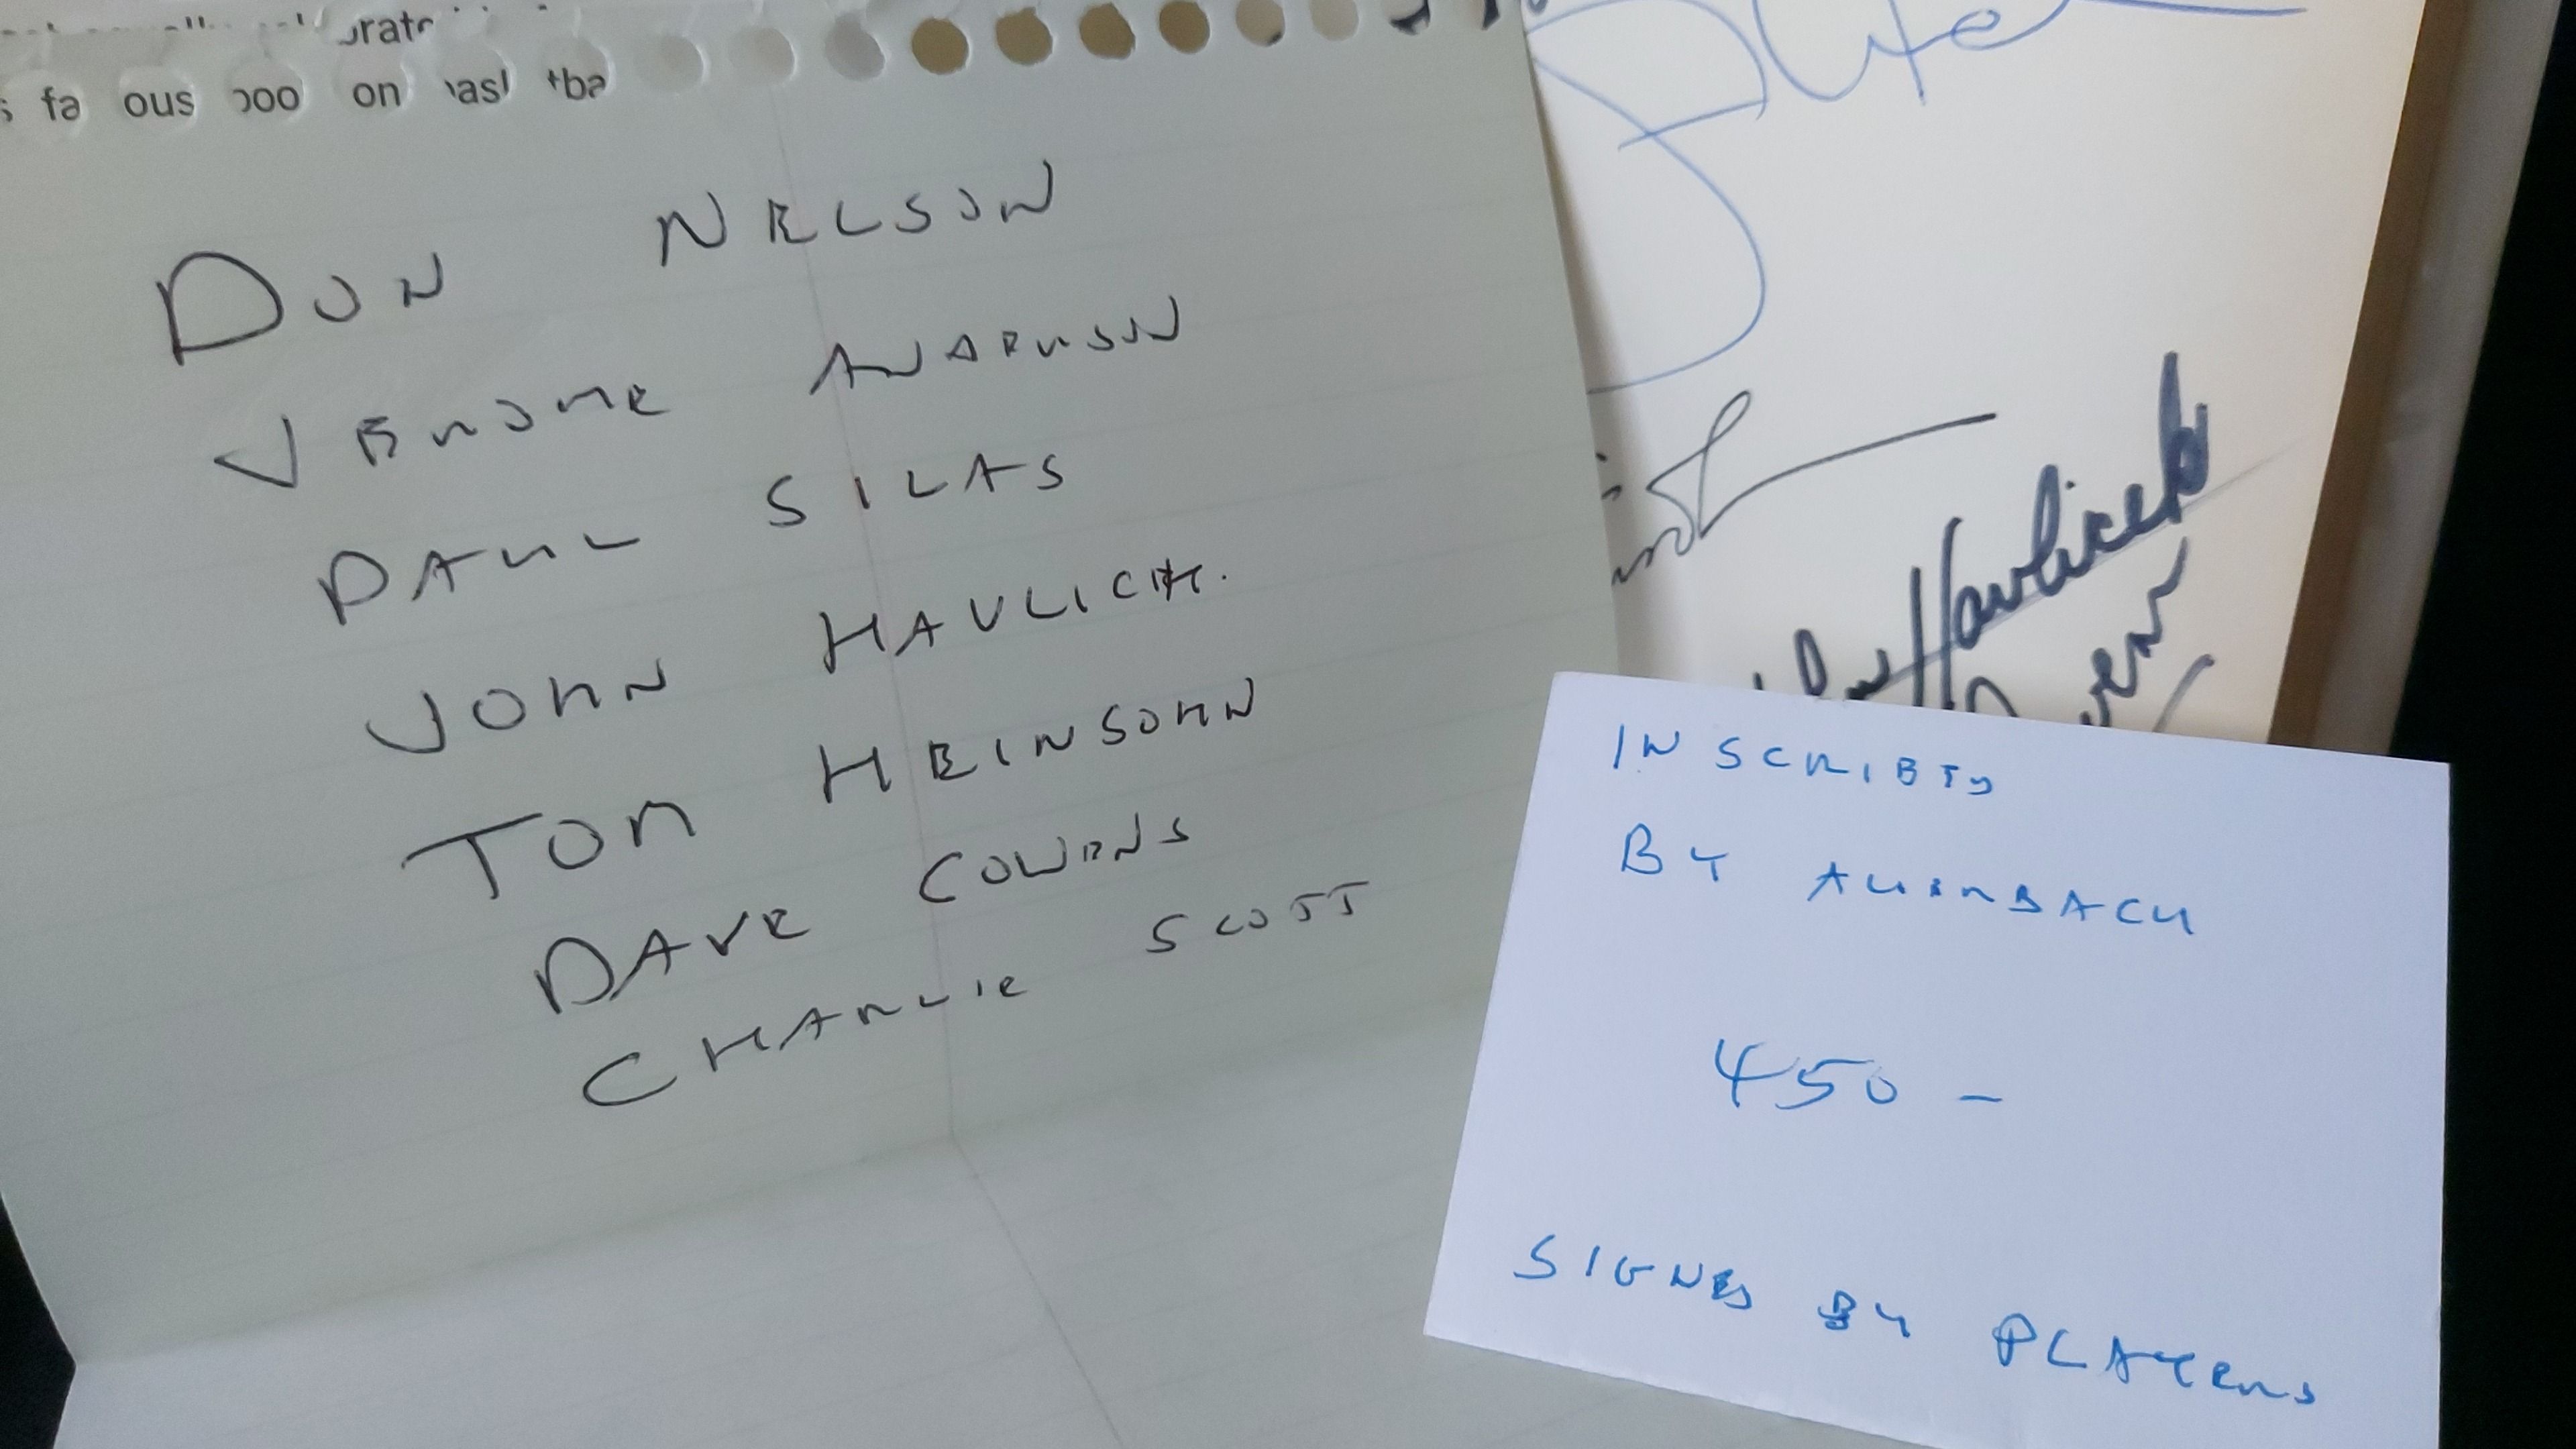 fa ous on
DON NELSON
JEROME ANDERSON
PAUL SILAS
JOHN HAVLICEK.
TOM HEINSOHN
DAVE COWENS
CHARLIE SCOTT
John Havlicek
INSCRIBED
BY AUERBACH
450 -
SIGNED BY PLAYERS